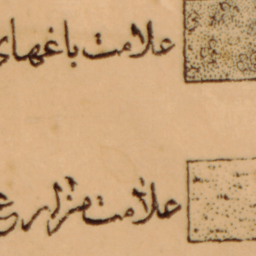 علامت باغهای
علامت مزارع